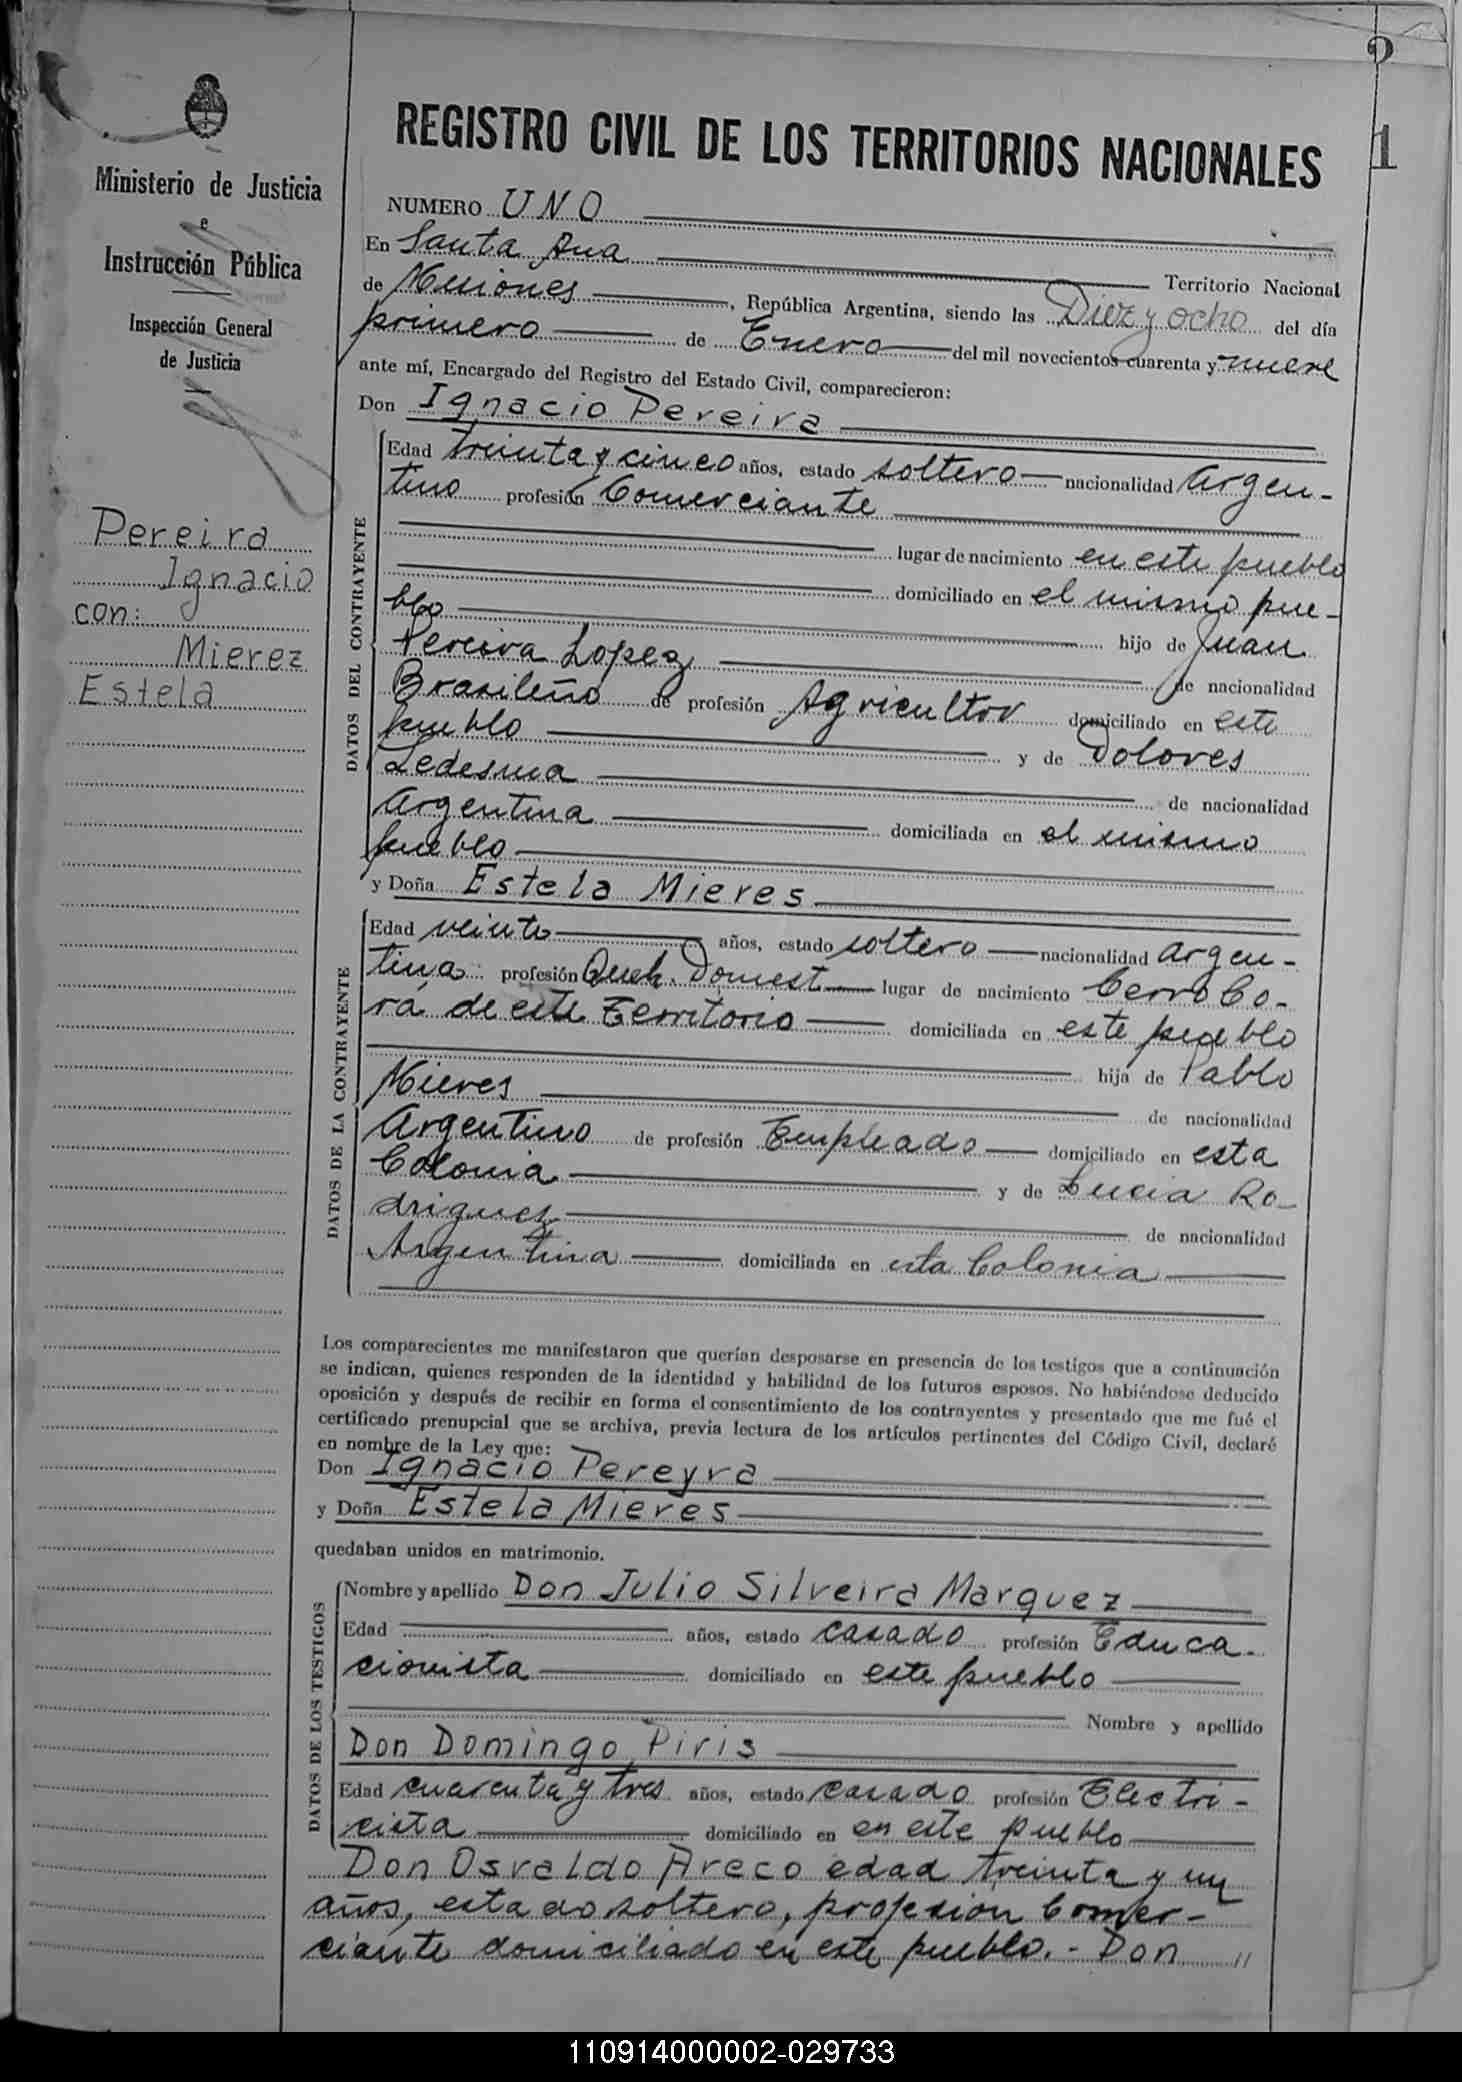 2
1
Ministerio de Justicia
e
Instrucción Pública
Inspección General
de Justicia
Pereira
Ignacio
con:
Mierez
Estela
REGISTRO CIVIL DE LOS TERRITORIOS NACIONALES
NUMERO UNO
En Santa Ana Territorio Nacional
de Misiones, República Argentina, siendo las Diez y ocho del día
primero de Enero del mil novecientos cuarenta y nueve
ante mí, Encargado del Registro del Estado Civil, comparecieron:
Don Ignacio Pereira
DATOS DEL CONTRAYENTE
Edad treinta y cinco años, estado soltero nacionalidad Argen-
tino profesión Comerciante
lugar de nacimiento en este pueblo
domiciliado en el mismo pue-
blo hijo de Juan
Pereira Lopez de nacionalidad
Brasileño de profesión Agricultor domiciliado en este
pueblo y de Dolores
Ledesma de nacionalidad
Argentina domiciliada en el mismo
pueblo
y Doña Estela Mieres
DATOS DE LA CONTRAYENTE
Edad veinte años, estado soltero nacionalidad argen-
tina profesión Queh. Domest lugar de nacimiento Cerro Co-
rá de este Territorio domiciliada en este pueblo
hija de Pablo
Mieres de nacionalidad
Argentino de profesión Empleado domiciliado en esta
Colonia y de Lucia Ro-
driguez de nacionalidad
Argentina domiciliada en esta Colonia
Los comparecientes me manifestaron que querían desposarse en presencia de los testigos que a continuación
se indican, quienes responden de la identidad y habilidad de los futuros esposos. No habiéndose deducido
oposición y después de recibir en forma el consentimiento de los contrayentes y presentado que me fué el
certificado prenupcial que se archiva, previa lectura de los artículos pertinentes del Código Civil, declaré
en nombre de la Ley que:
Don Ignacio Pereyra
y Doña Estela Mieres
quedaban unidos en matrimonio.
DATOS DE LOS TESTIGOS
Nombre y apellido Don Julio Silveira Marquez
Edad años, estado casado profesión Educa-
cionista domiciliado en este pueblo
Nombre y apellido
Don Domingo Piris
Edad cuarenta y tres años, estado casado profesión Electri-
cista domiciliado en en este pueblo
Don Osvaldo Areco edad treinta y un
años, estado soltero, profesión Comer-
ciante domiciliado en este pueblo.- Don "
110914000002-029733